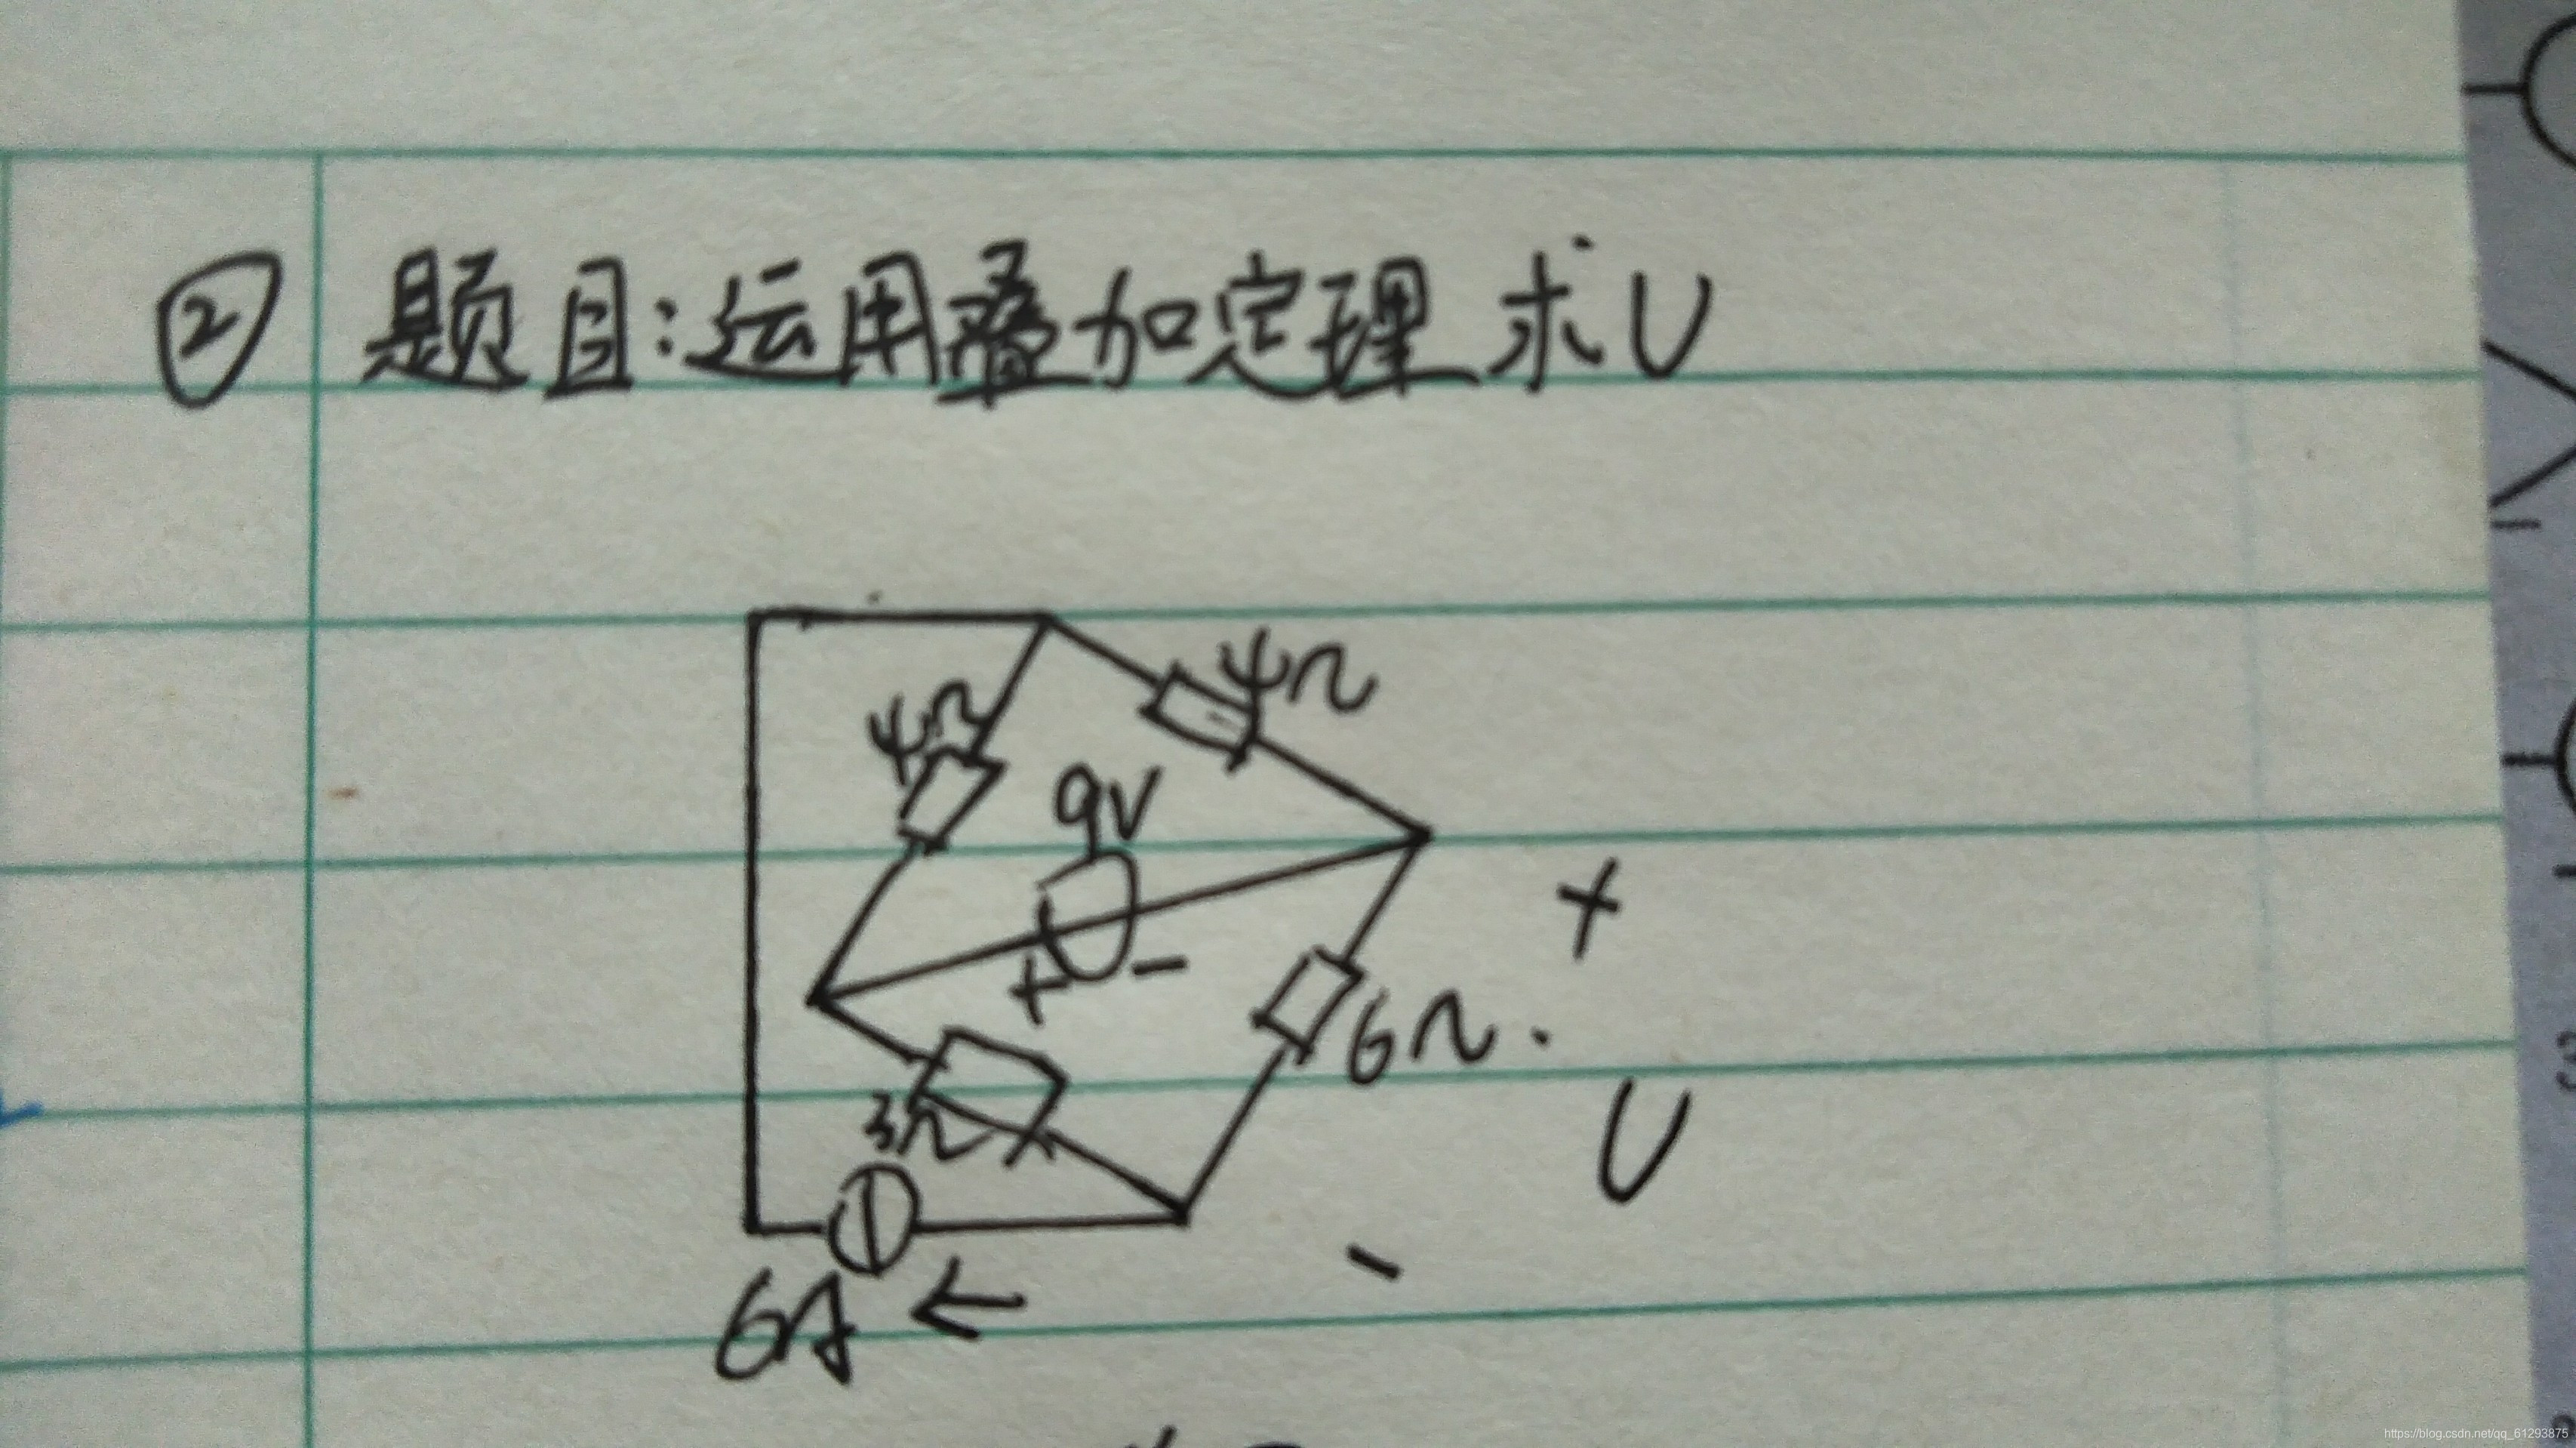 ② 题目:运用叠加定理 求U
4Ω
4Ω
9V
+ -
+
6Ω
U
3Ω
-
6A ←
https://blog.csdn.net/qq_61293875